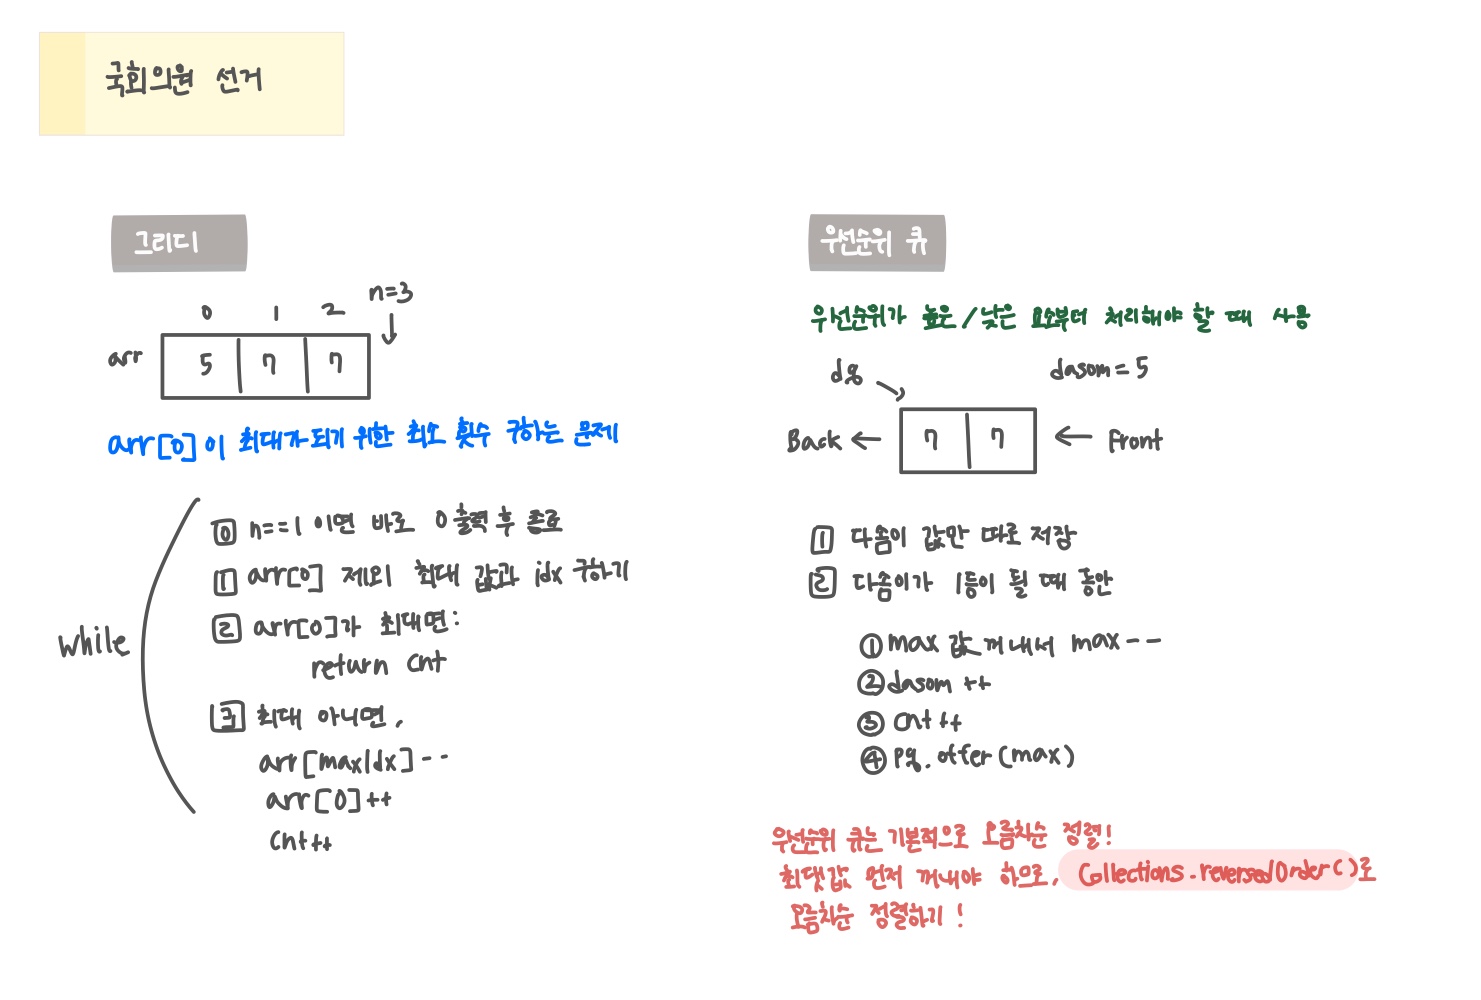 국회의원 선거
그리디
n=3
0 1 2
arr 5 7 7
arr[0]이 최대가 되기 위한 최소 횟수 구하는 문제
while
0 n==1 이면 바로 0 출력 후 종료
1 arr[0] 제외 최대 값과 idx 구하기
2 arr[0]가 최대면:
return cnt
3 최대 아니면,
arr[maxIdx]--
arr[0]++
cnt++
우선순위 큐
우선순위가 높은/낮은 요소부터 처리해야 할 때 사용
dq dasom=5
Back ← 7 7 ← Front
1 다솜이 값만 따로 저장
2 다솜이가 1등이 될 때 동안
① max 값 꺼내서 max--
② dasom ++
③ cnt++
④ pq.offer(max)
우선순위 큐는 기본적으로 오름차순 정렬!
최댓값 먼저 꺼내야 하므로, Collections.reversedOrder()로
오름차순 정렬하기!